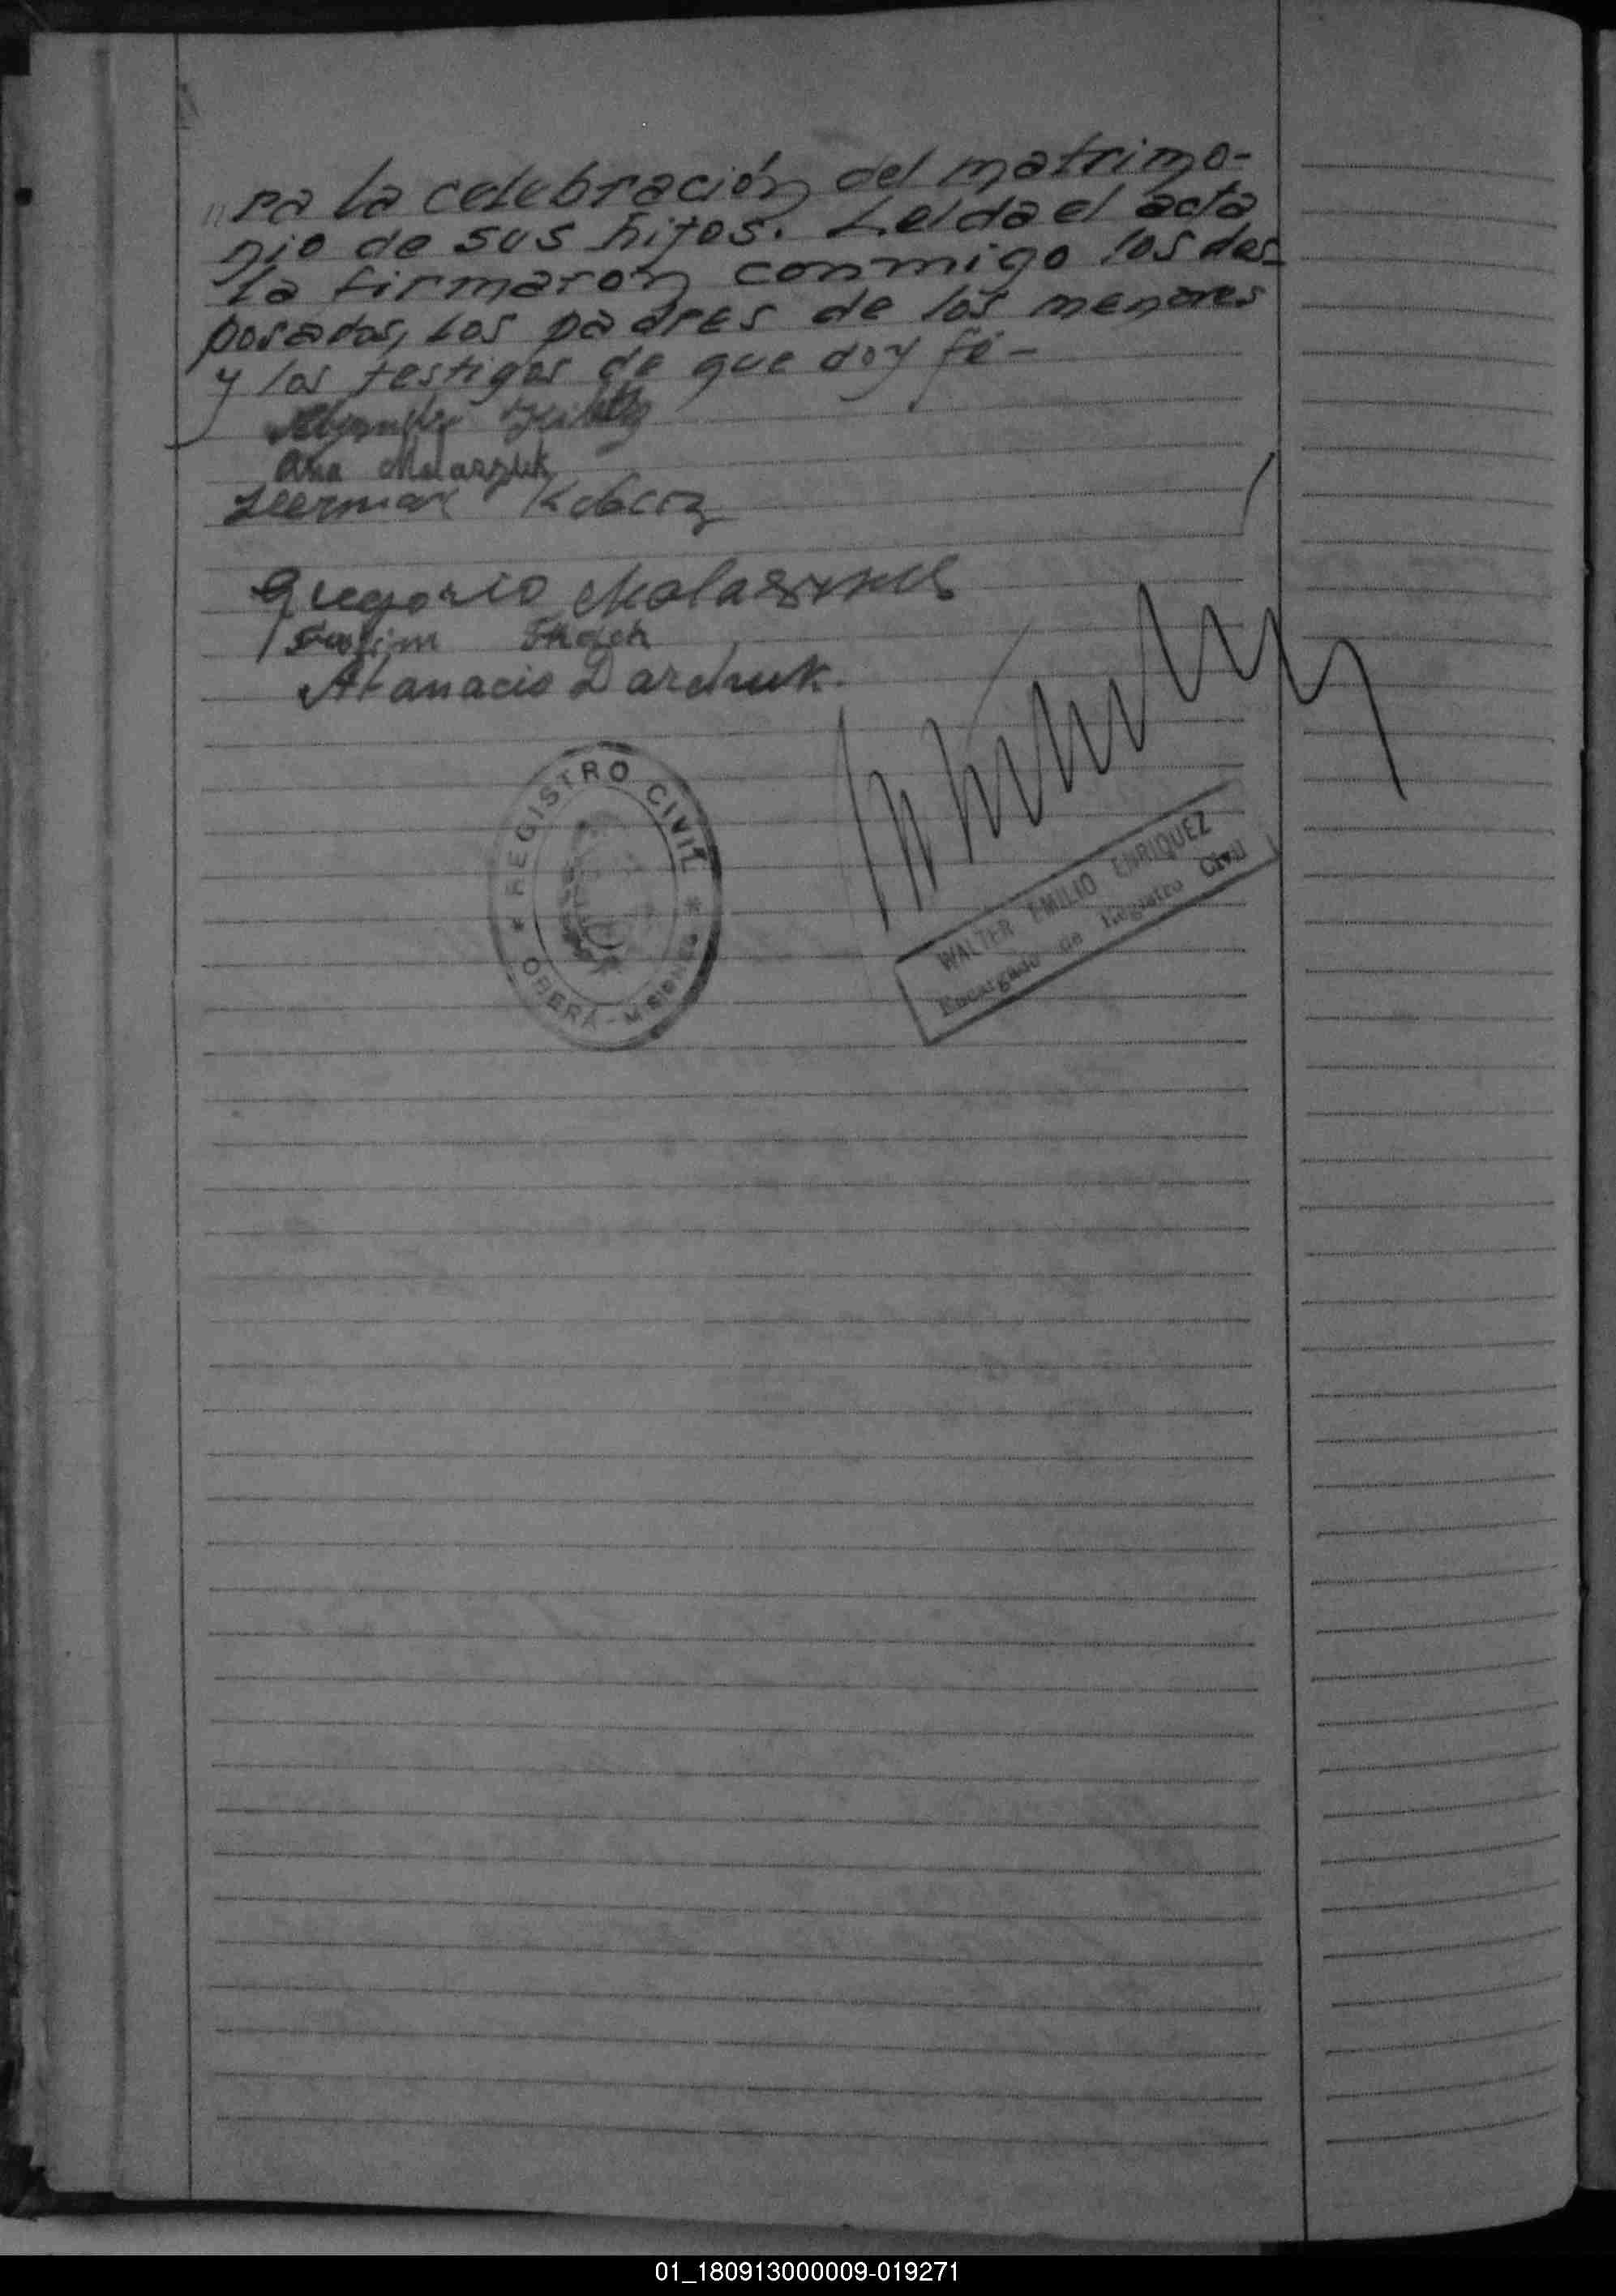 ra la celebración del matrimo-
nio de sus hijos. Leída el acta
la firmaron conmigo los des-
posados, los padres de los menores
y los testigos de que doy fé-
Ana Malarzuk
Herman
Gregorio
Atanacio Darchuk.
REGISTRO CIVIL
OBERÁ - MISIONES
WALTER EMILIO ENRIQUEZ
Encargado de Registro Civil
01_180913000009-019271